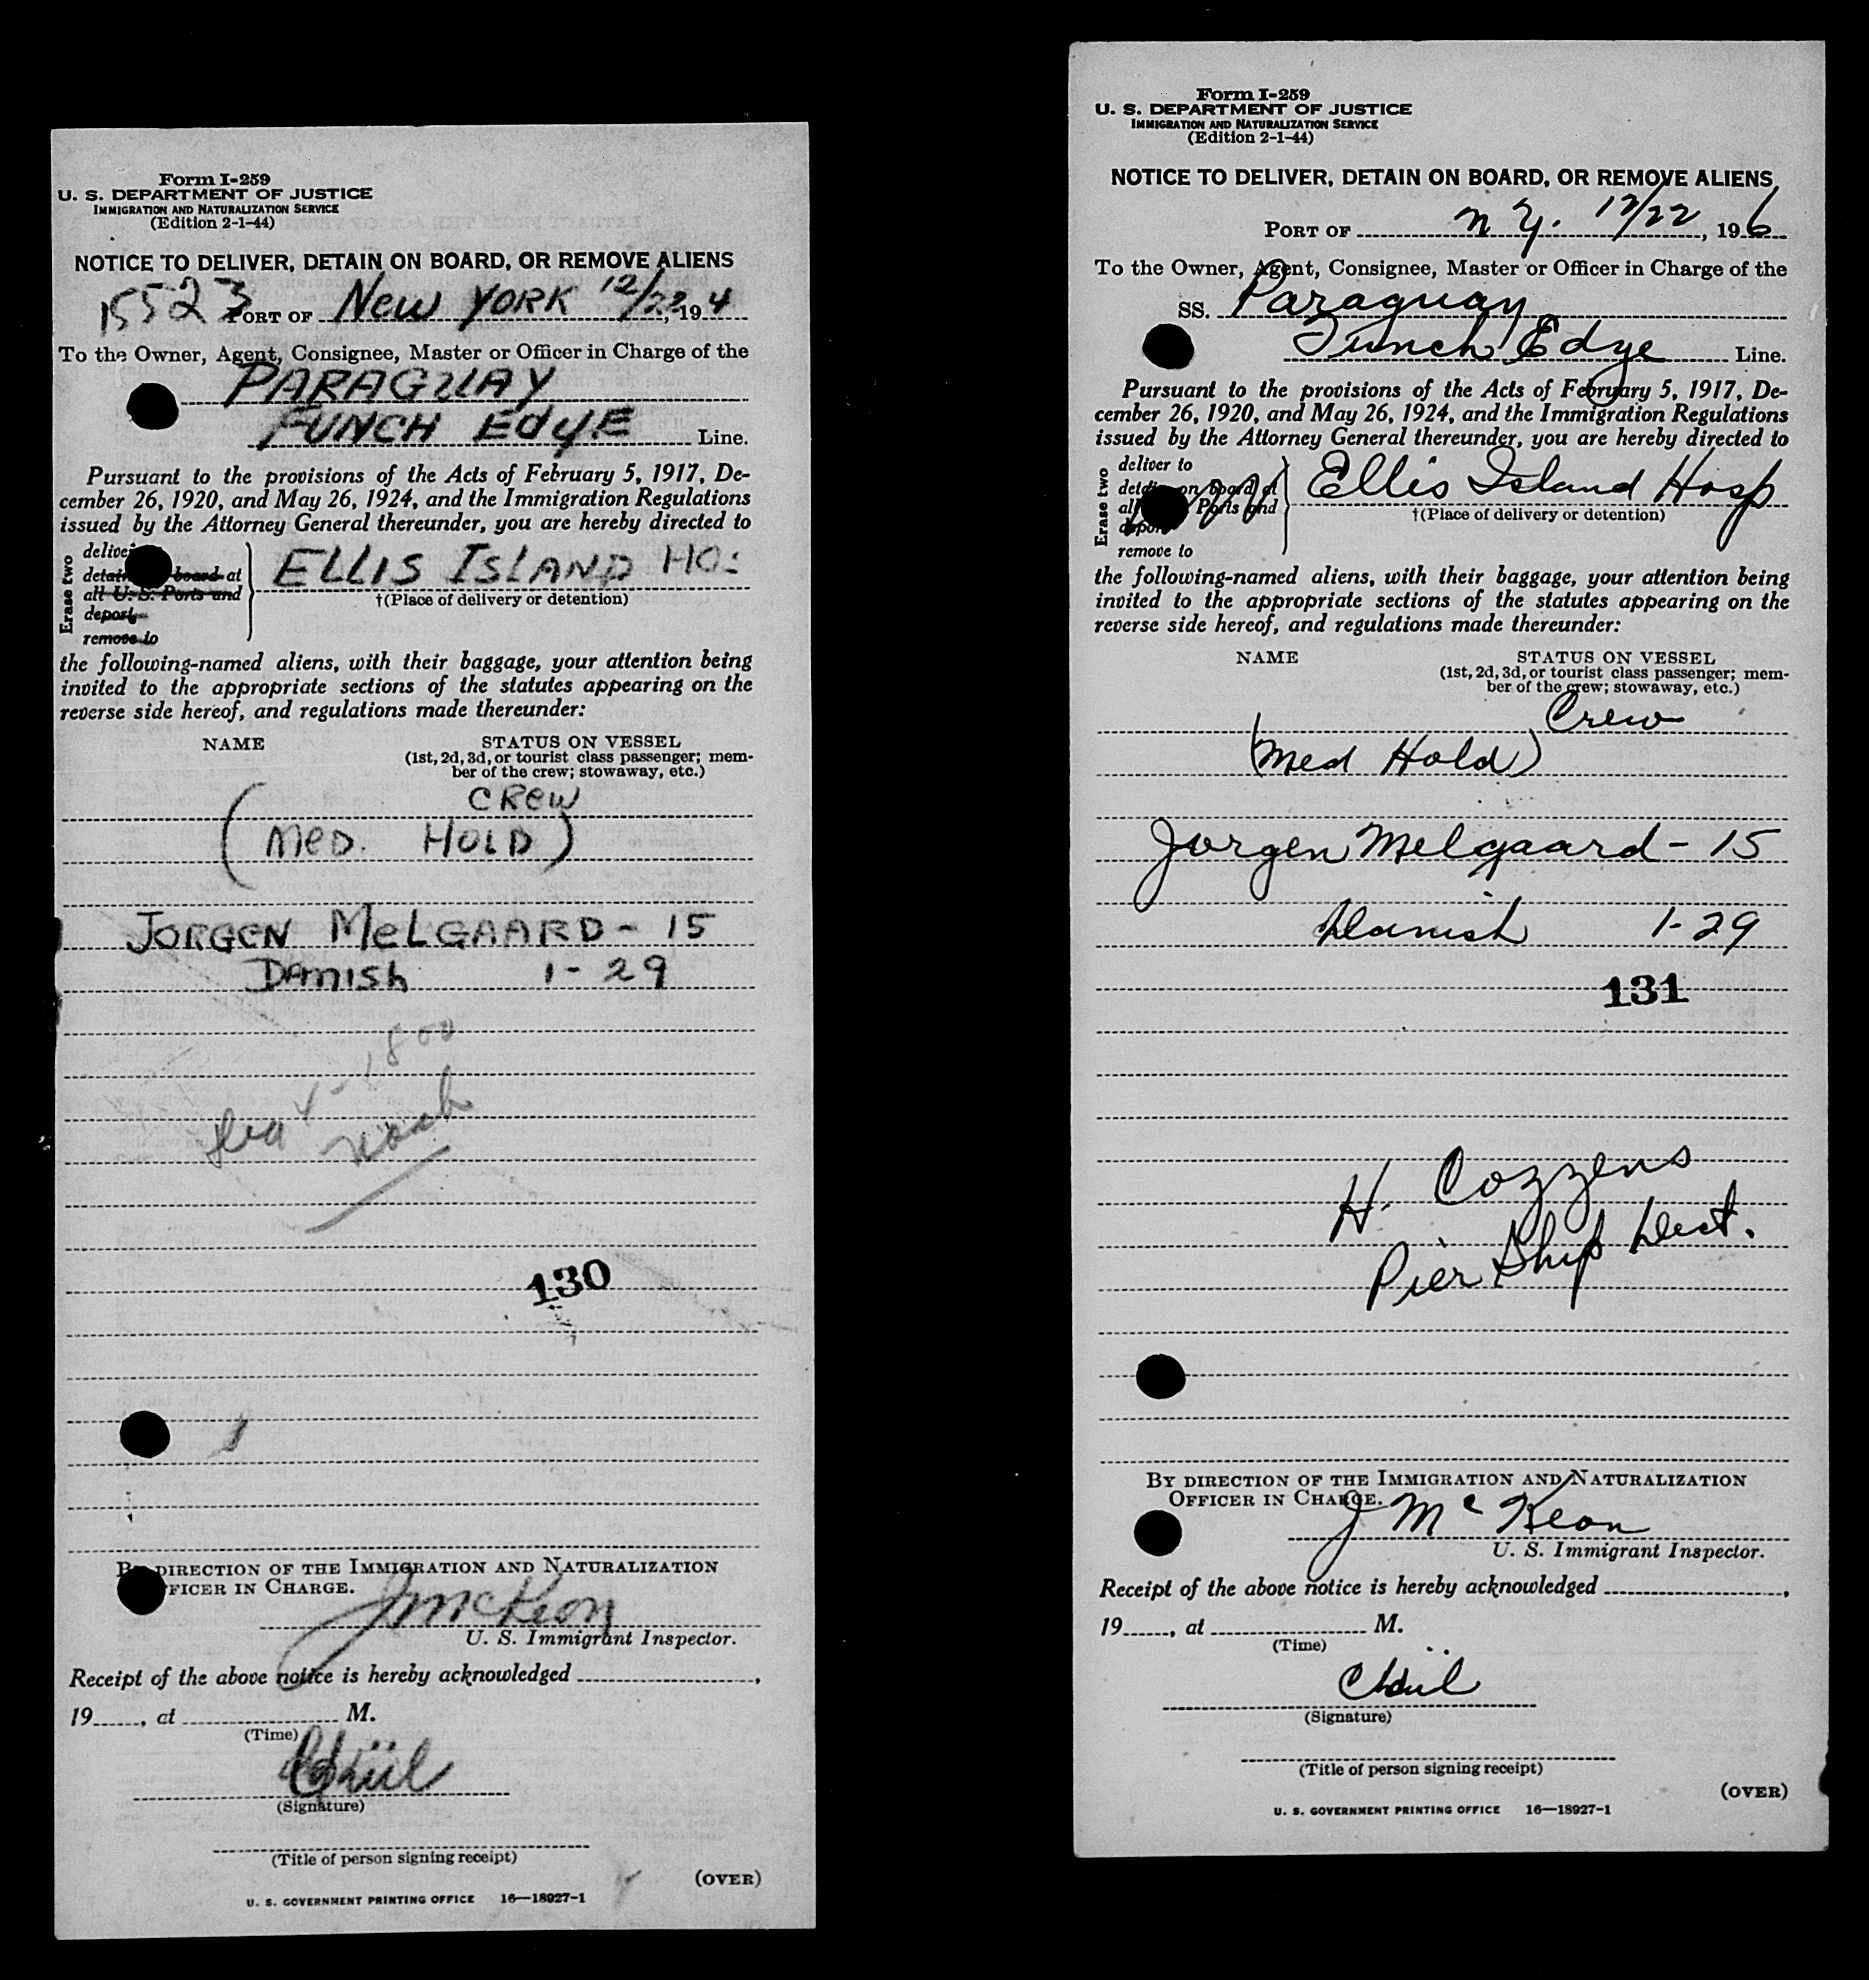 Form I-259
U. S. DEPARTMENT OF JUSTICE
IMMIGRATION AND NATURALIZATION SERVICE
(Edition 2-1-44)
NOTICE TO DELIVER, DETAIN ON BOARD, OR REMOVE ALIENS
15523 PORT OF NEW YORK 12/22, 194
To the Owner, Agent, Consignee, Master or Officer in Charge of the
PARAGUAY
FUNCH EDYE Line.
Pursuant to the provisions of the Acts of February 5, 1917, De-
cember 26, 1920, and May 26, 1924, and the Immigration Regulations
issued by the Attorney General thereunder, you are hereby directed to
Erase two
deliver
detain board at
all U. S. Ports and
deport
remove to
ELLIS ISLAND HO:
†(Place of delivery or detention)
the following-named aliens, with their baggage, your attention being
invited to the appropriate sections of the statutes appearing on the
reverse side hereof, and regulations made thereunder:
NAME STATUS ON VESSEL
(1st, 2d, 3d, or tourist class passenger; mem-
ber of the crew; stowaway, etc.)
CREW
(MED. HOLD)
JORGEN MELGAARD - 15
DANISH 1-29
130
BY DIRECTION OF THE IMMIGRATION AND NATURALIZATION
OFFICER IN CHARGE.
J McKeon
U. S. Immigrant Inspector.
Receipt of the above notice is hereby acknowledged ,
19 , at M.
(Time)
(Signature)
(Title of person signing receipt)
(OVER)
U. S. GOVERNMENT PRINTING OFFICE 16—18927-1
Form I-259
U. S. DEPARTMENT OF JUSTICE
IMMIGRATION AND NATURALIZATION SERVICE
(Edition 2-1-44)
NOTICE TO DELIVER, DETAIN ON BOARD, OR REMOVE ALIENS
PORT OF N Y. 12/22, 196
To the Owner, Agent, Consignee, Master or Officer in Charge of the
SS. Paraguay
Funch Edye Line.
Pursuant to the provisions of the Acts of February 5, 1917, De-
cember 26, 1920, and May 26, 1924, and the Immigration Regulations
issued by the Attorney General thereunder, you are hereby directed to
Erase two
deliver to
detain on board at
all Ports and
deport
remove to
Ellis Island Hosp
†(Place of delivery or detention)
the following-named aliens, with their baggage, your attention being
invited to the appropriate sections of the statutes appearing on the
reverse side hereof, and regulations made thereunder:
NAME STATUS ON VESSEL
(1st, 2d, 3d, or tourist class passenger; mem-
ber of the crew; stowaway, etc.)
Crew
(Med Hold)
Jorgen Melgaard - 15
Danish 1-29
131
H. Cozzens
Pier Ship
BY DIRECTION OF THE IMMIGRATION AND NATURALIZATION
OFFICER IN CHARGE.
J McKeon
U. S. Immigrant Inspector.
Receipt of the above notice is hereby acknowledged ,
19 , at M.
(Time)
(Signature)
(Title of person signing receipt)
(OVER)
U. S. GOVERNMENT PRINTING OFFICE 16—18927-1